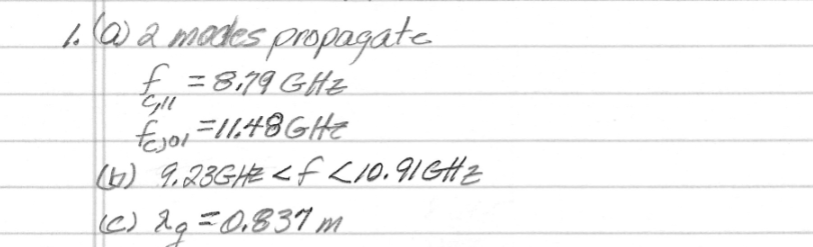 1. (a) 2 modes propagate
f c,11 = 8.79 GHz
f c,01 = 11.48 GHz
(b) 9.23GHz < f < 10.91 GHz
(c) λg = 0.837 m